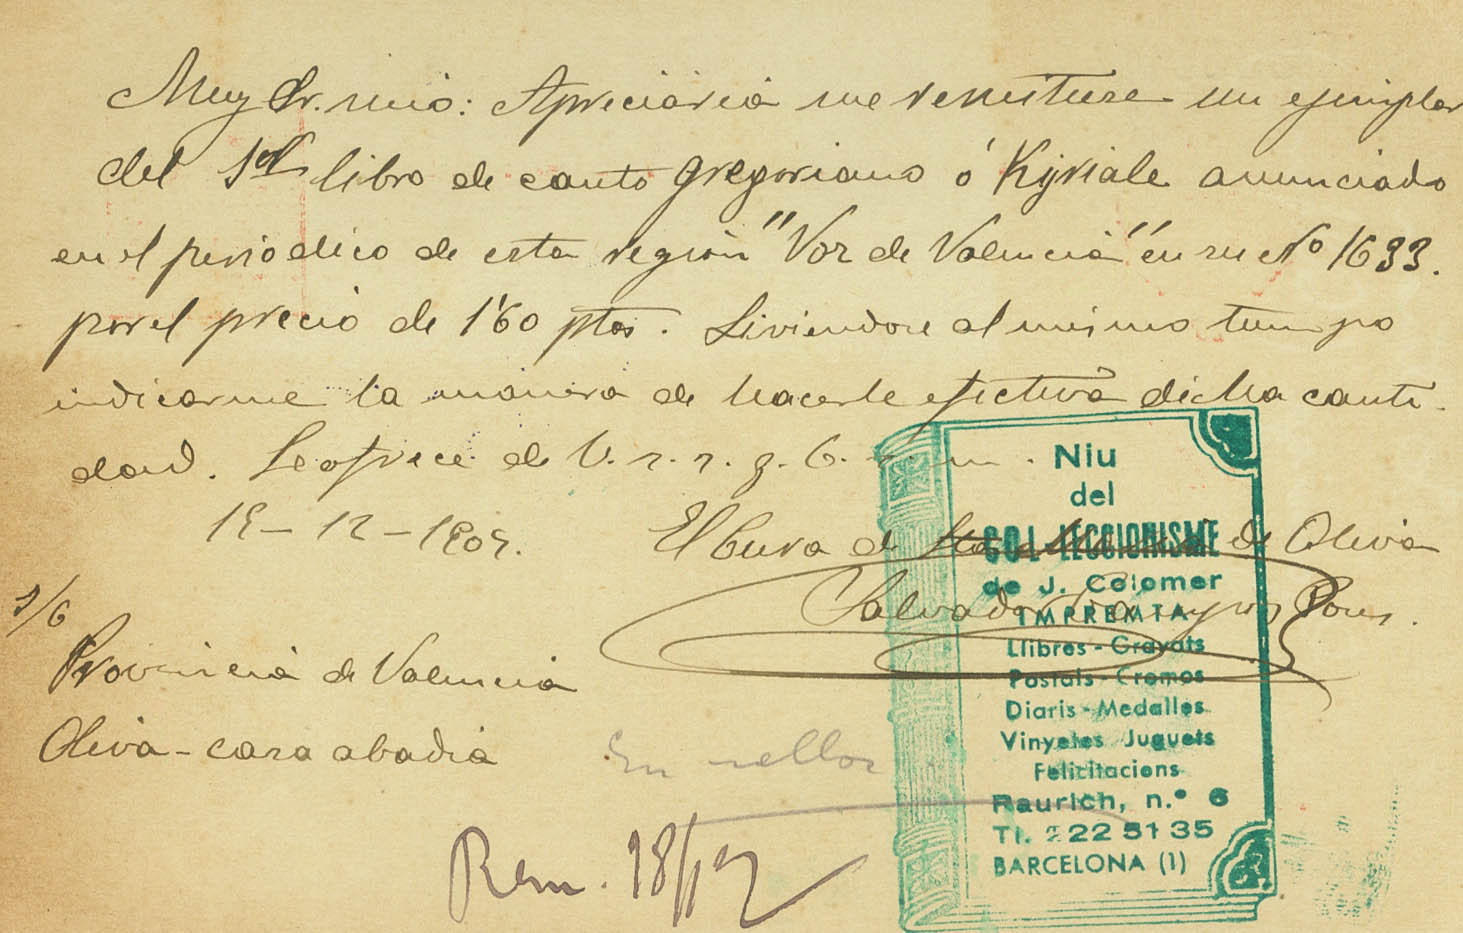 Muy Sr. mio: Apreciaria me remitiese un ejemplar
del 1er libro de canto gregoriano ó Kyriale anunciado
en el periodico de esta región "Voz de Valencia" en su No 1633.
por el precio de 1'60 ptas. Sirviendose al mismo tiempo
indicarme la manera de hacerle efectiva dicha canti-
dad. Se ofrece de V. s. s. q. b. s. m.
El Cura de Sta de Oliva
Salvador Pons.
Provincia de Valencia
Oliva - casa abadia
En sellos
Rem. 18/12
Niu
del
COL·LECCIONISME
de J. Colomer
IMPREMTA
Llibres - Gravats
Postals - Cromos
Diaris - Medalles
Vinyetes Juguets
Felicitacions
Raurich, n.º 6
Tl. 222 51 35
BARCELONA (1)